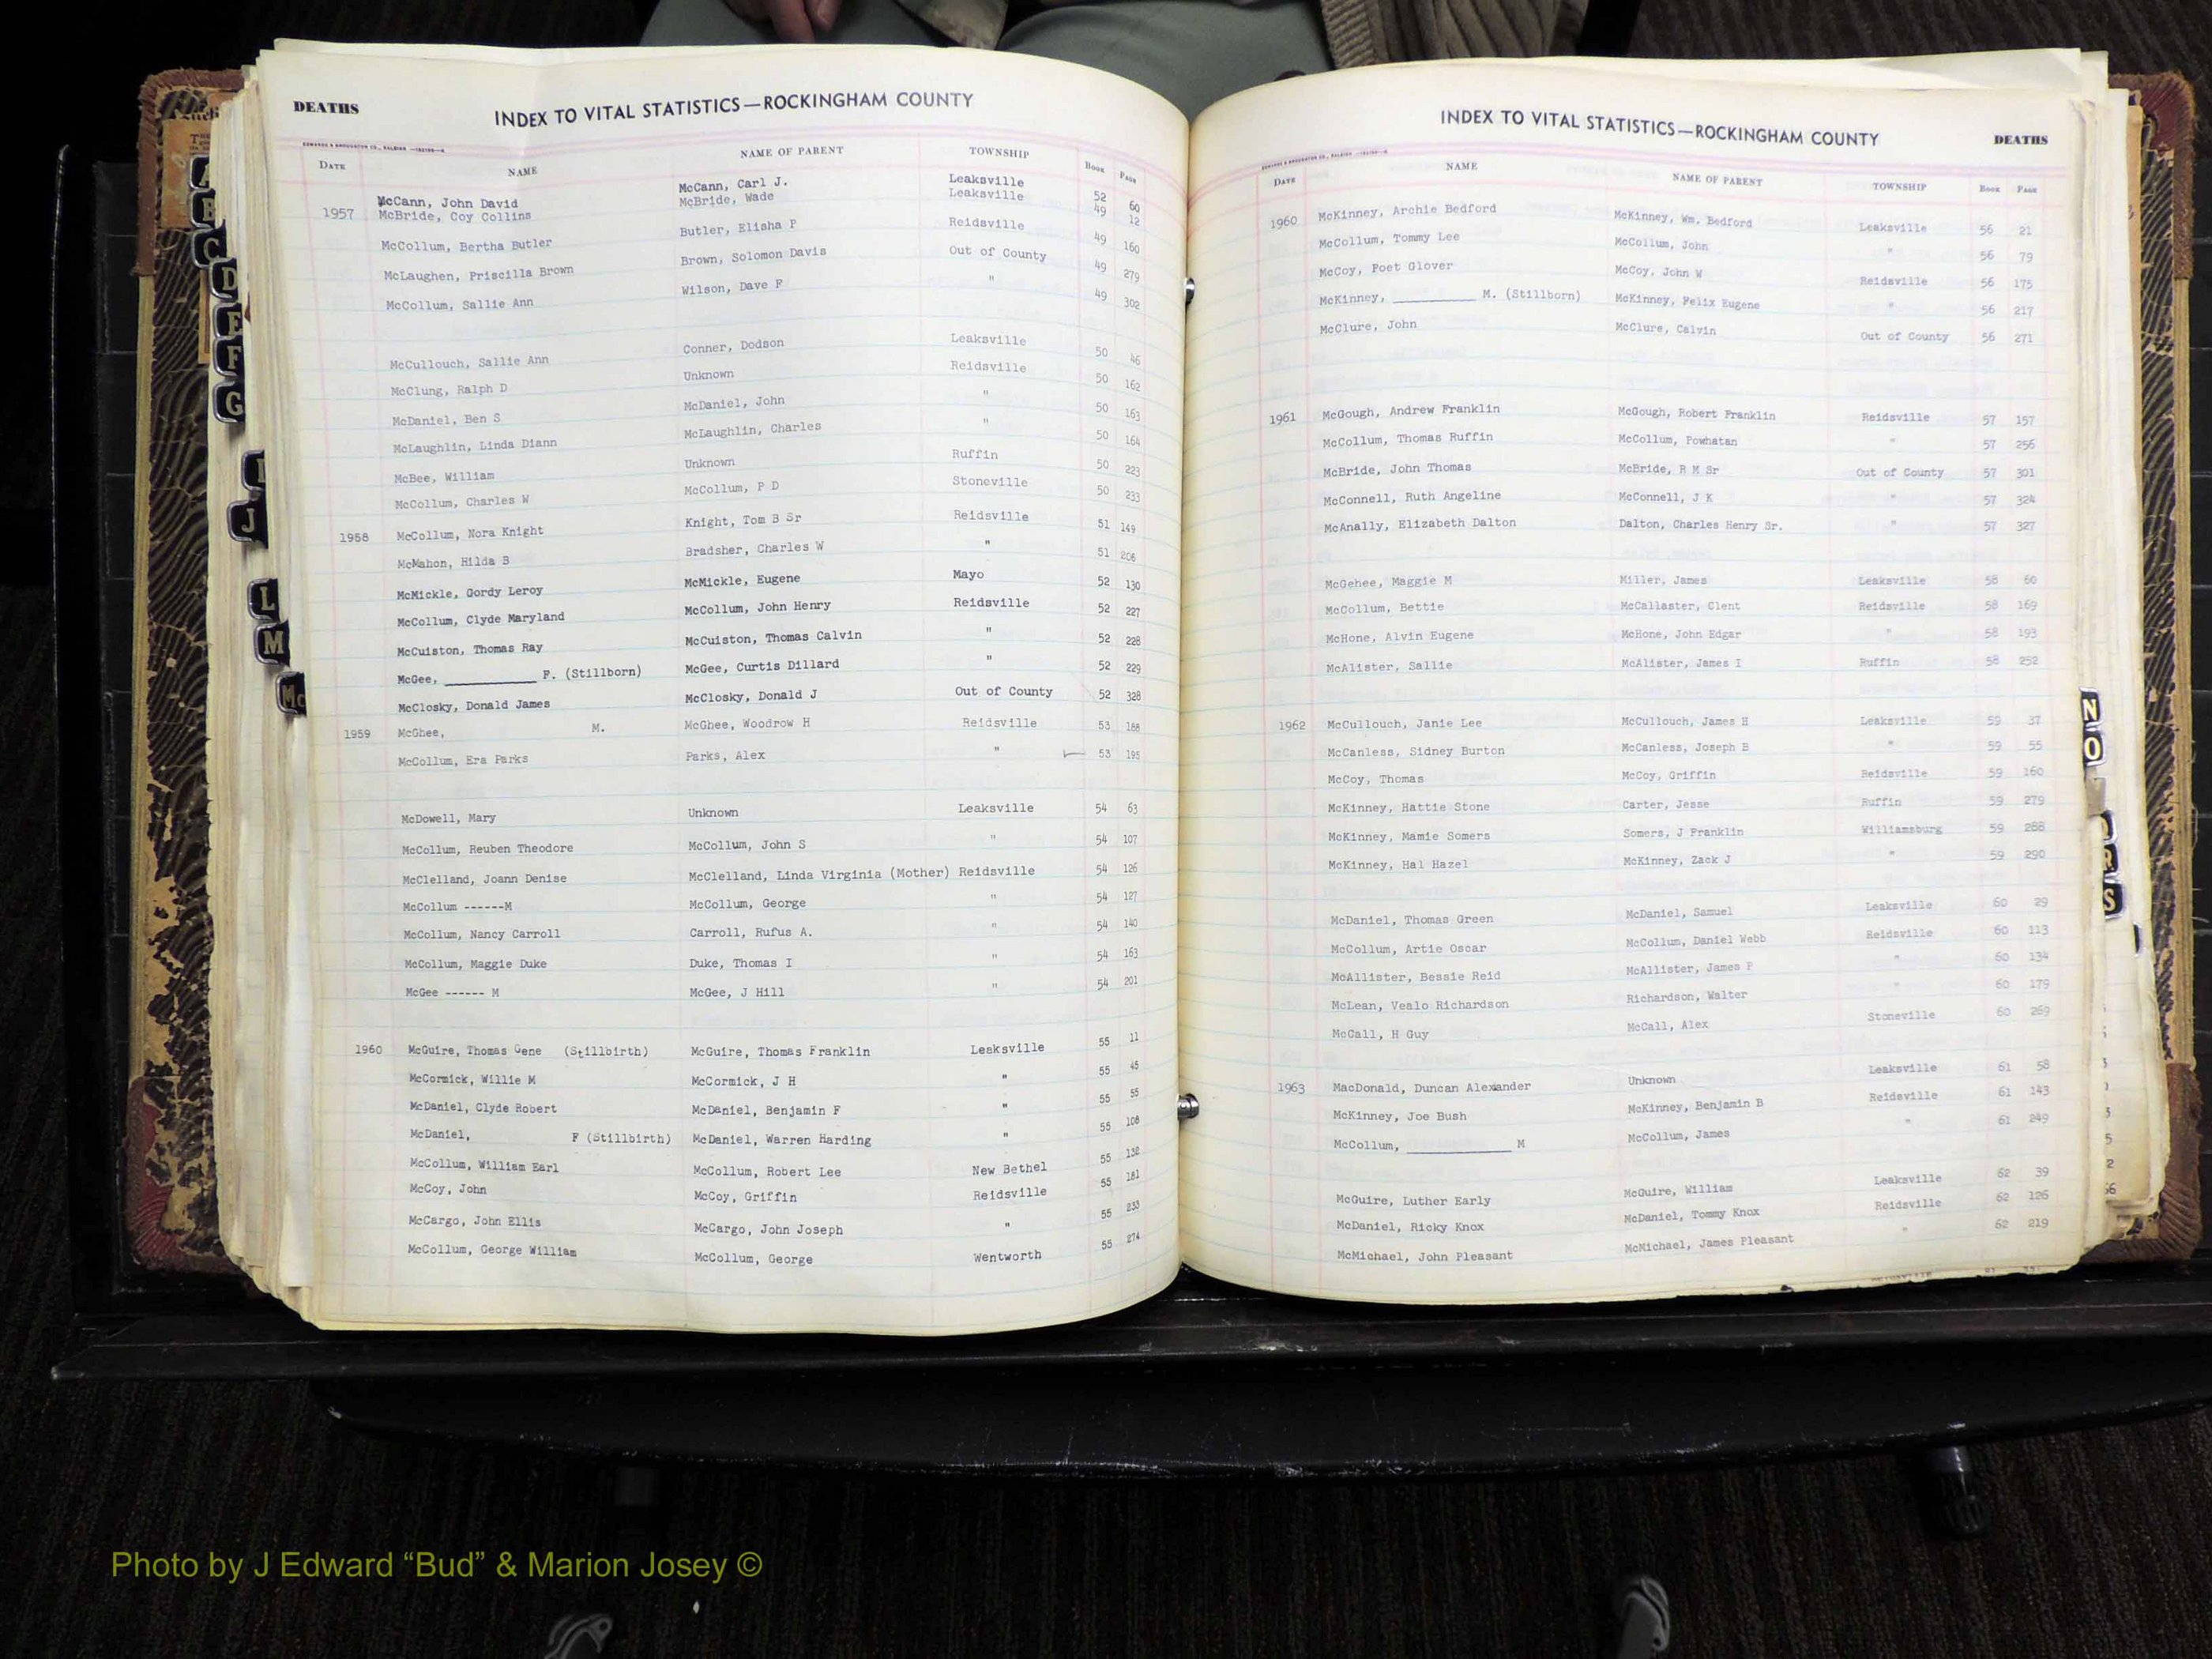 DEATHS
INDEX TO VITAL STATISTICS—ROCKINGHAM COUNTY
EDWARDS & BROUGHTON CO., RALEIGH
DATE NAME NAME OF PARENT TOWNSHIP BOOK PAGE
McCann, John David McCann, Carl J. Leaksville 52 60
1957 McBride, Coy Collins McBride, Wade Leaksville 49 12
McCollum, Bertha Butler Butler, Elisha P Reidsville 49 160
McLaughen, Priscilla Brown Brown, Solomon Davis Out of County 49 279
McCollum, Sallie Ann Wilson, Dave F " 49 302
McCullouch, Sallie Ann Conner, Dodson Leaksville 50 46
McClung, Ralph D Unknown Reidsville 50 162
McDaniel, Ben S McDaniel, John " 50 163
McLaughlin, Linda Diann McLaughlin, Charles " 50 164
McBee, William Unknown Ruffin 50 223
McCollum, Charles W McCollum, P D Stoneville 50 233
1958 McCollum, Nora Knight Knight, Tom B Sr Reidsville 51 149
McMahon, Hilda B Bradsher, Charles W " 51 206
McMickle, Gordy Leroy McMickle, Eugene Mayo 52 130
McCollum, Clyde Maryland McCollum, John Henry Reidsville 52 227
McCuiston, Thomas Ray McCuiston, Thomas Calvin " 52 228
McGee, ___________ F. (Stillborn) McGee, Curtis Dillard " 52 229
McClosky, Donald James McClosky, Donald J Out of County 52 328
1959 McGhee, M. McGhee, Woodrow H Reidsville 53 188
McCollum, Era Parks Parks, Alex " 53 195
McDowell, Mary Unknown Leaksville 54 63
McCollum, Reuben Theodore McCollum, John S " 54 107
McClelland, Joann Denise McClelland, Linda Virginia (Mother) Reidsville 54 126
McCollum ------M McCollum, George " 54 127
McCollum, Nancy Carroll Carroll, Rufus A. " 54 140
McCollum, Maggie Duke Duke, Thomas I " 54 163
McGee ------ M McGee, J Hill " 54 201
1960 McGuire, Thomas Gene (Stillbirth) McGuire, Thomas Franklin Leaksville 55 11
McCormick, Willie M McCormick, J H " 55 45
McDaniel, Clyde Robert McDaniel, Benjamin F " 55 55
McDaniel, F (Stillbirth) McDaniel, Warren Harding " 55 108
McCollum, William Earl McCollum, Robert Lee New Bethel 55 132
McCoy, John McCoy, Griffin Reidsville 55 181
McCargo, John Ellis McCargo, John Joseph " 55 233
McCollum, George William McCollum, George Wentworth 55 274
INDEX TO VITAL STATISTICS—ROCKINGHAM COUNTY
DEATHS
DATE NAME NAME OF PARENT TOWNSHIP BOOK PAGE
1960 McKinney, Archie Bedford McKinney, Wm. Bedford Leaksville 56 21
McCollum, Tommy Lee McCollum, John " 56 79
McCoy, Poet Glover McCoy, John W Reidsville 56 175
McKinney, __________ M. (Stillborn) McKinney, Felix Eugene " 56 217
McClure, John McClure, Calvin Out of County 56 271
1961 McGough, Andrew Franklin McGough, Robert Franklin Reidsville 57 157
McCollum, Thomas Ruffin McCollum, Powhatan " 57 256
McBride, John Thomas McBride, R M Sr Out of County 57 301
McConnell, Ruth Angeline McConnell, J K " 57 324
McAnally, Elizabeth Dalton Dalton, Charles Henry Sr. " 57 327
McGehee, Maggie M Miller, James Leaksville 58 60
McCollum, Bettie McCallaster, Clent Reidsville 58 169
McHone, Alvin Eugene McHone, John Edgar " 58 193
McAlister, Sallie McAlister, James I Ruffin 58 252
1962 McCullouch, Janie Lee McCullouch, James H Leaksville 59 37
McCanless, Sidney Burton McCanless, Joseph B " 59 55
McCoy, Thomas McCoy, Griffin Reidsville 59 160
McKinney, Hattie Stone Carter, Jesse Ruffin 59 279
McKinney, Mamie Somers Somers, J Franklin Williamsburg 59 288
McKinney, Hal Hazel McKinney, Zack J " 59 290
McDaniel, Thomas Green McDaniel, Samuel Leaksville 60 29
McCollum, Artie Oscar McCollum, Daniel Webb Reidsville 60 113
McAllister, Bessie Reid McAllister, James P " 60 134
McLean, Vealo Richardson Richardson, Walter " 60 179
McCall, H Guy McCall, Alex Stoneville 60 269
1963 MacDonald, Duncan Alexander Unknown Leaksville 61 58
McKinney, Joe Bush McKinney, Benjamin B Reidsville 61 143
McCollum, _____________ M McCollum, James " 61 249
McGuire, Luther Early McGuire, William Leaksville 62 39
McDaniel, Ricky Knox McDaniel, Tommy Knox Reidsville 62 126
McMichael, John Pleasant McMichael, James Pleasant " 62 219
A
B
C
D
E
F
G
I
J
L
M
Mc
N
O
R
S
Photo by J Edward “Bud” & Marion Josey ©